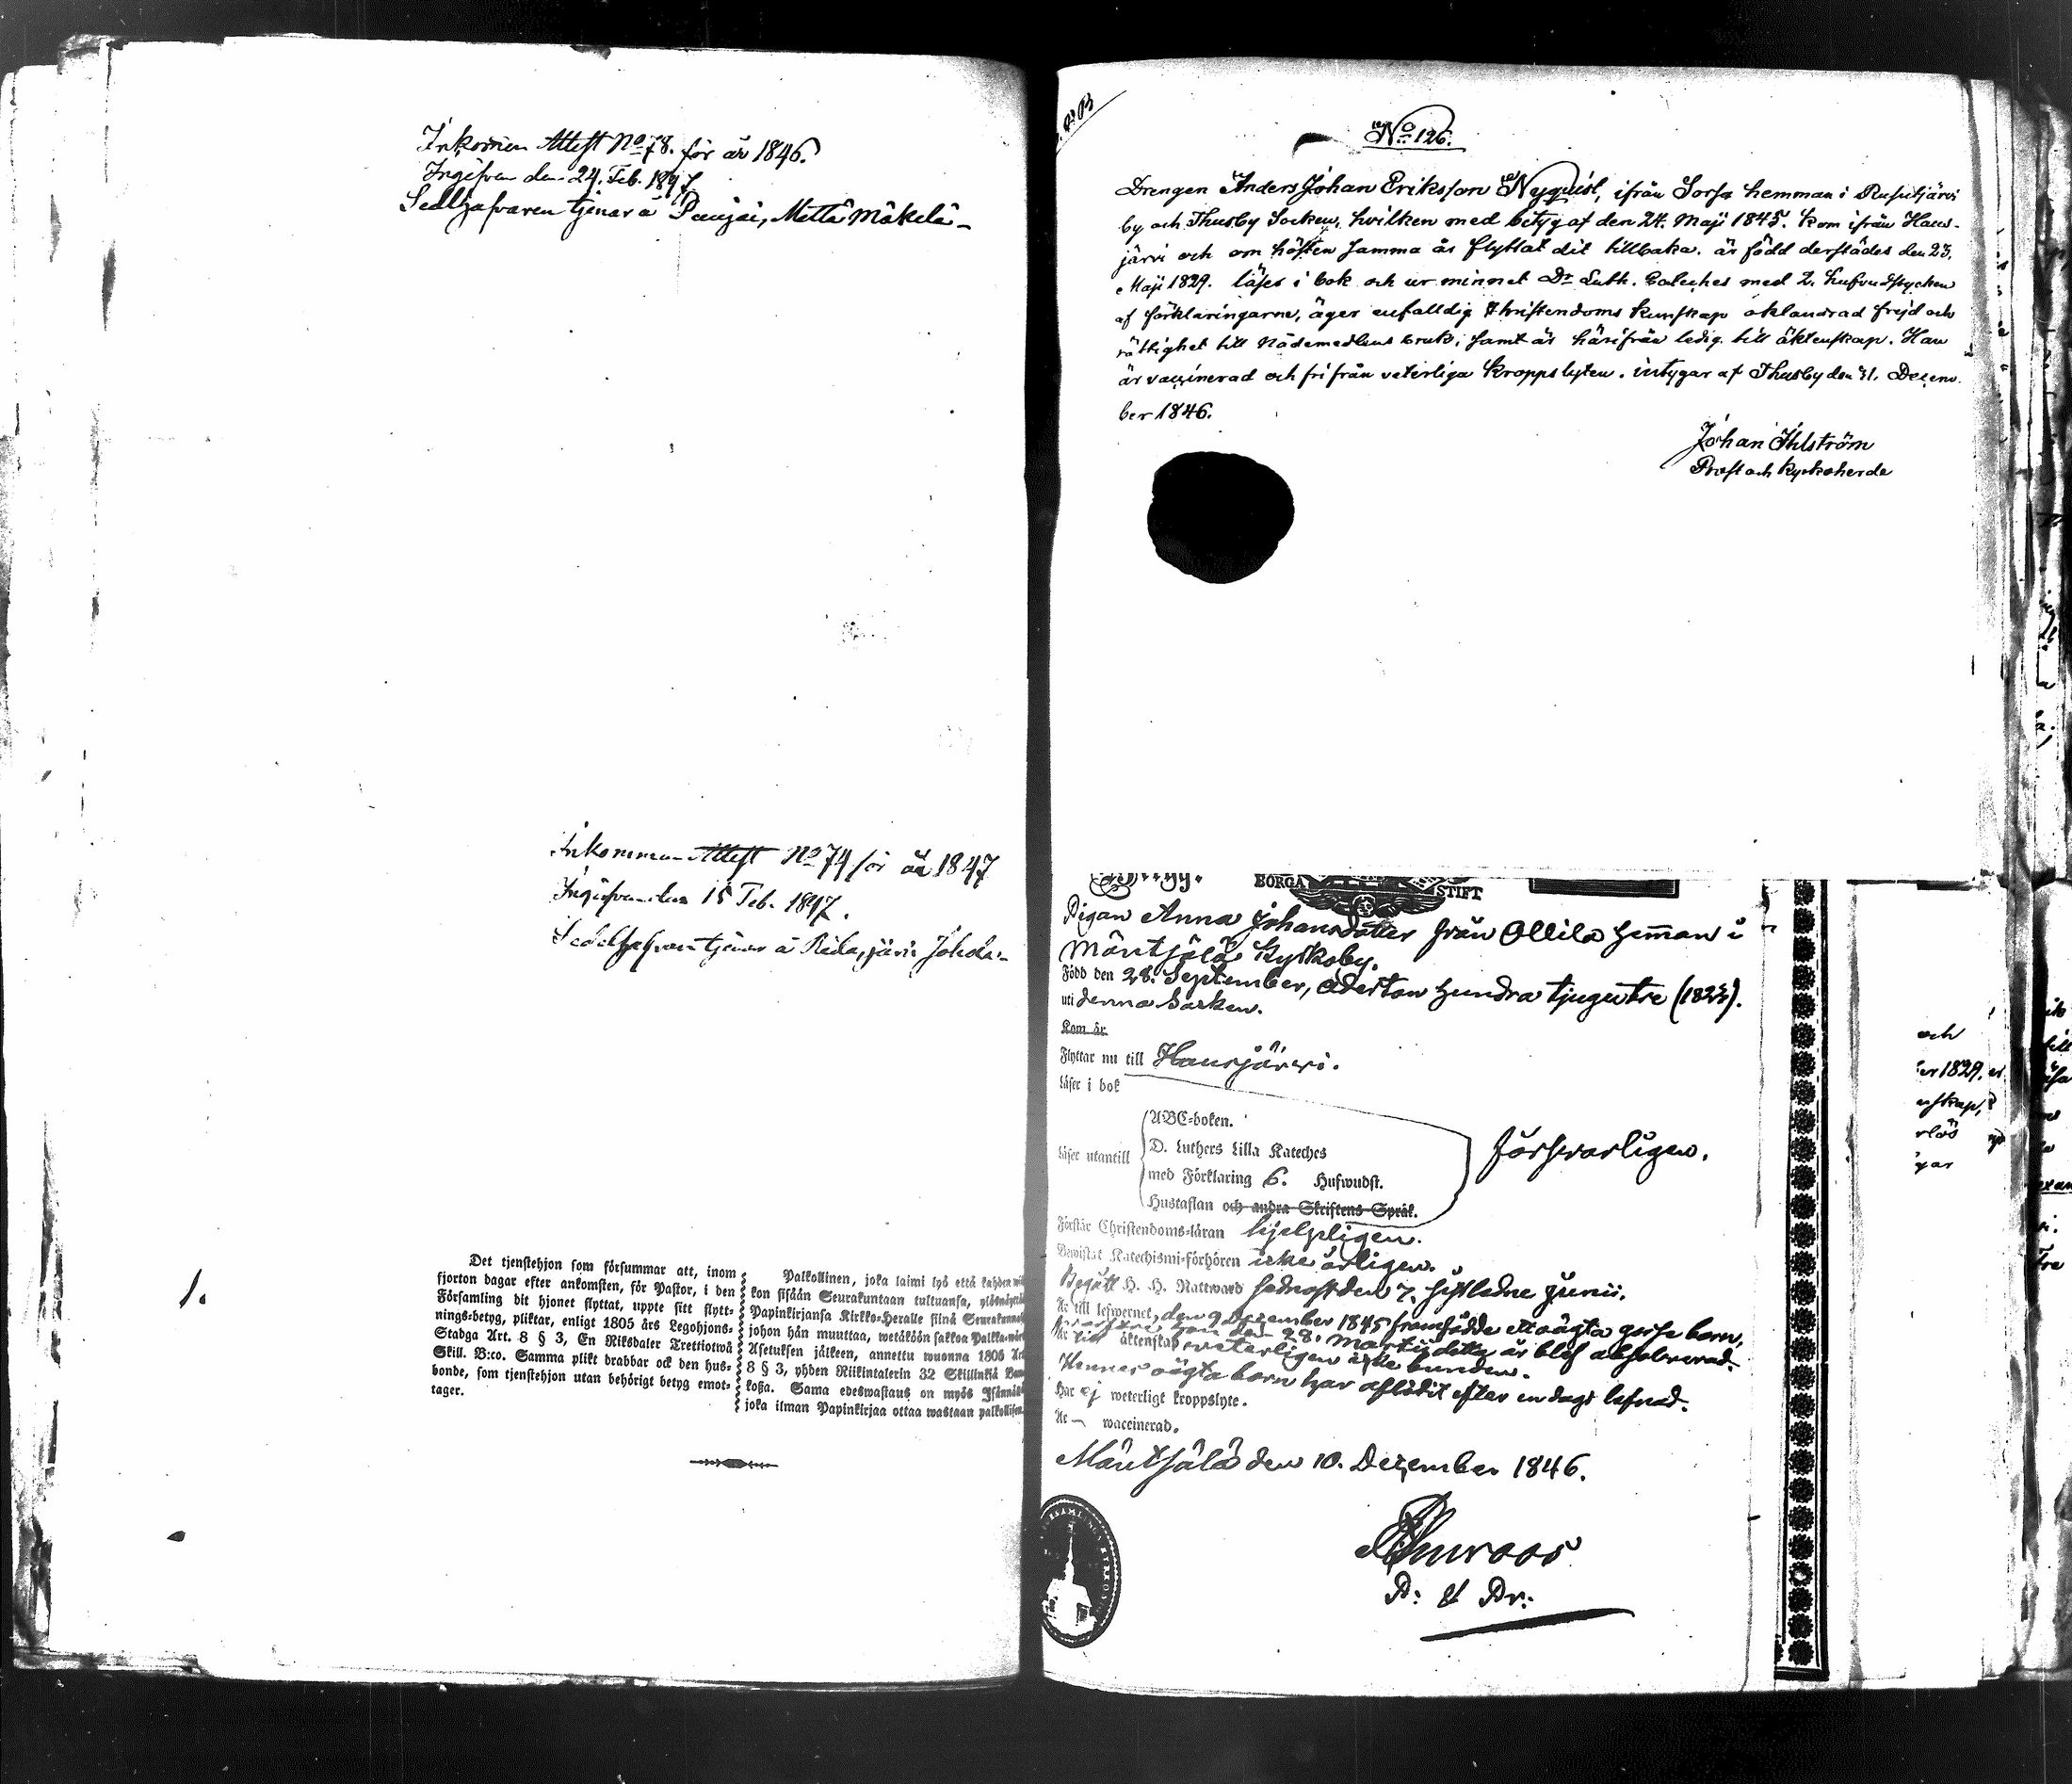 Inkommen Attest No 78. för år 1846.
Ingifven den 24. Feb. 1847.
Sedlhafvaren tjenar å Mettä Mäkelä
Inkommen Attest No 74 för år 1847
Ingifven den 15 Feb. 1847.
Sedelhafvaren tjenar å
1.
Det tjenstehjon som försummar att, inom
fjorton dagar efter ankomsten, för Pastor, i den
Församling dit hjonet flyttat, uppte sitt flytt-
nings-betyg, pliktar, enligt 1805 års Legohjons-
Stadga Art. 8 § 3, En Riksdaler Trettiotwå
Skill. B:co. Samma plikt drabbar ock den hus-
bonde, som tjenstehjon utan behörigt betyg emot-
tager.
Palkollinen, joka laimi lyö että kahden
kon sisään Seurakuntaan tultuansa,
Papinkirjansa Kirkko-Heralle siinä
johon hän muuttaa, wetäköön sakkoa
Asetuksen jälkeen, annettu wuonna 1805
8 § 3, yhden Riikintalerin 32 Skillinkiä
koßa. Sama edeswastaus on myös
joka ilman Papinkirjaa ottaa wastaan
No 126.
Drengen Anders Johan Eriksson Nyquist, ifrån Sorsa hemman i Rusutjärvi
by och Thusby Socken, hvilken med betyg af den 24. Maji 1845. kom ifrån Haus-
järvi och om hösten samma år flyttat dit tillbaka. är född derstädes den 23.
Maji 1829. läser i bok och ur minnet Dr Luth. Cateches med 2. hufvudstycken
af förklaringarne, äger enfalldig Christendoms kunskap oklandrad frejd och
rättighet till Nådemedlens bruk, samt är härifrån ledig till äktenskap. Han
är vaccinerad och fri från veterliga kroppslyten. intygar af Thusby den 31. Decem-
ber 1846.
Johan Ihlström
Prost och Kyrkoherde
BORGÅ STIFT
Pigan Anna Johansdotter från Ollila heman i
Mäntsälä Kyrkoby.
Född den 28. September, adertonhundra tjugutre (1823).
uti denna Socken.
Kom år
Flyttar nu till Hausjärvi.
läser i bok
läser utantill
ABC-boken.
D. Luthers Lilla Kateches
med Förklaring 6. Hufwudst.
Hustaflan och andra Skriftens Språk.
försvarligen.
Förstår Christendoms-läran hjelpligen.
Bewistat Katechismi-förhören icke årligen.
Begått H. H. Nattward sednast den 7. sistledne Junii.
till lefwernet, den 9 December 1845 framfödde ett oägta gosse barn,
den 28. Martii detta år blef absolverad.
till äktenskap veterligen icke bunden.
Hennes oägta barn har aflidit efter en dags lefnad.
Har ej weterligt kroppslyte.
Är waccinerad.
Mäntsälä den 10. December 1846.
och
1829.